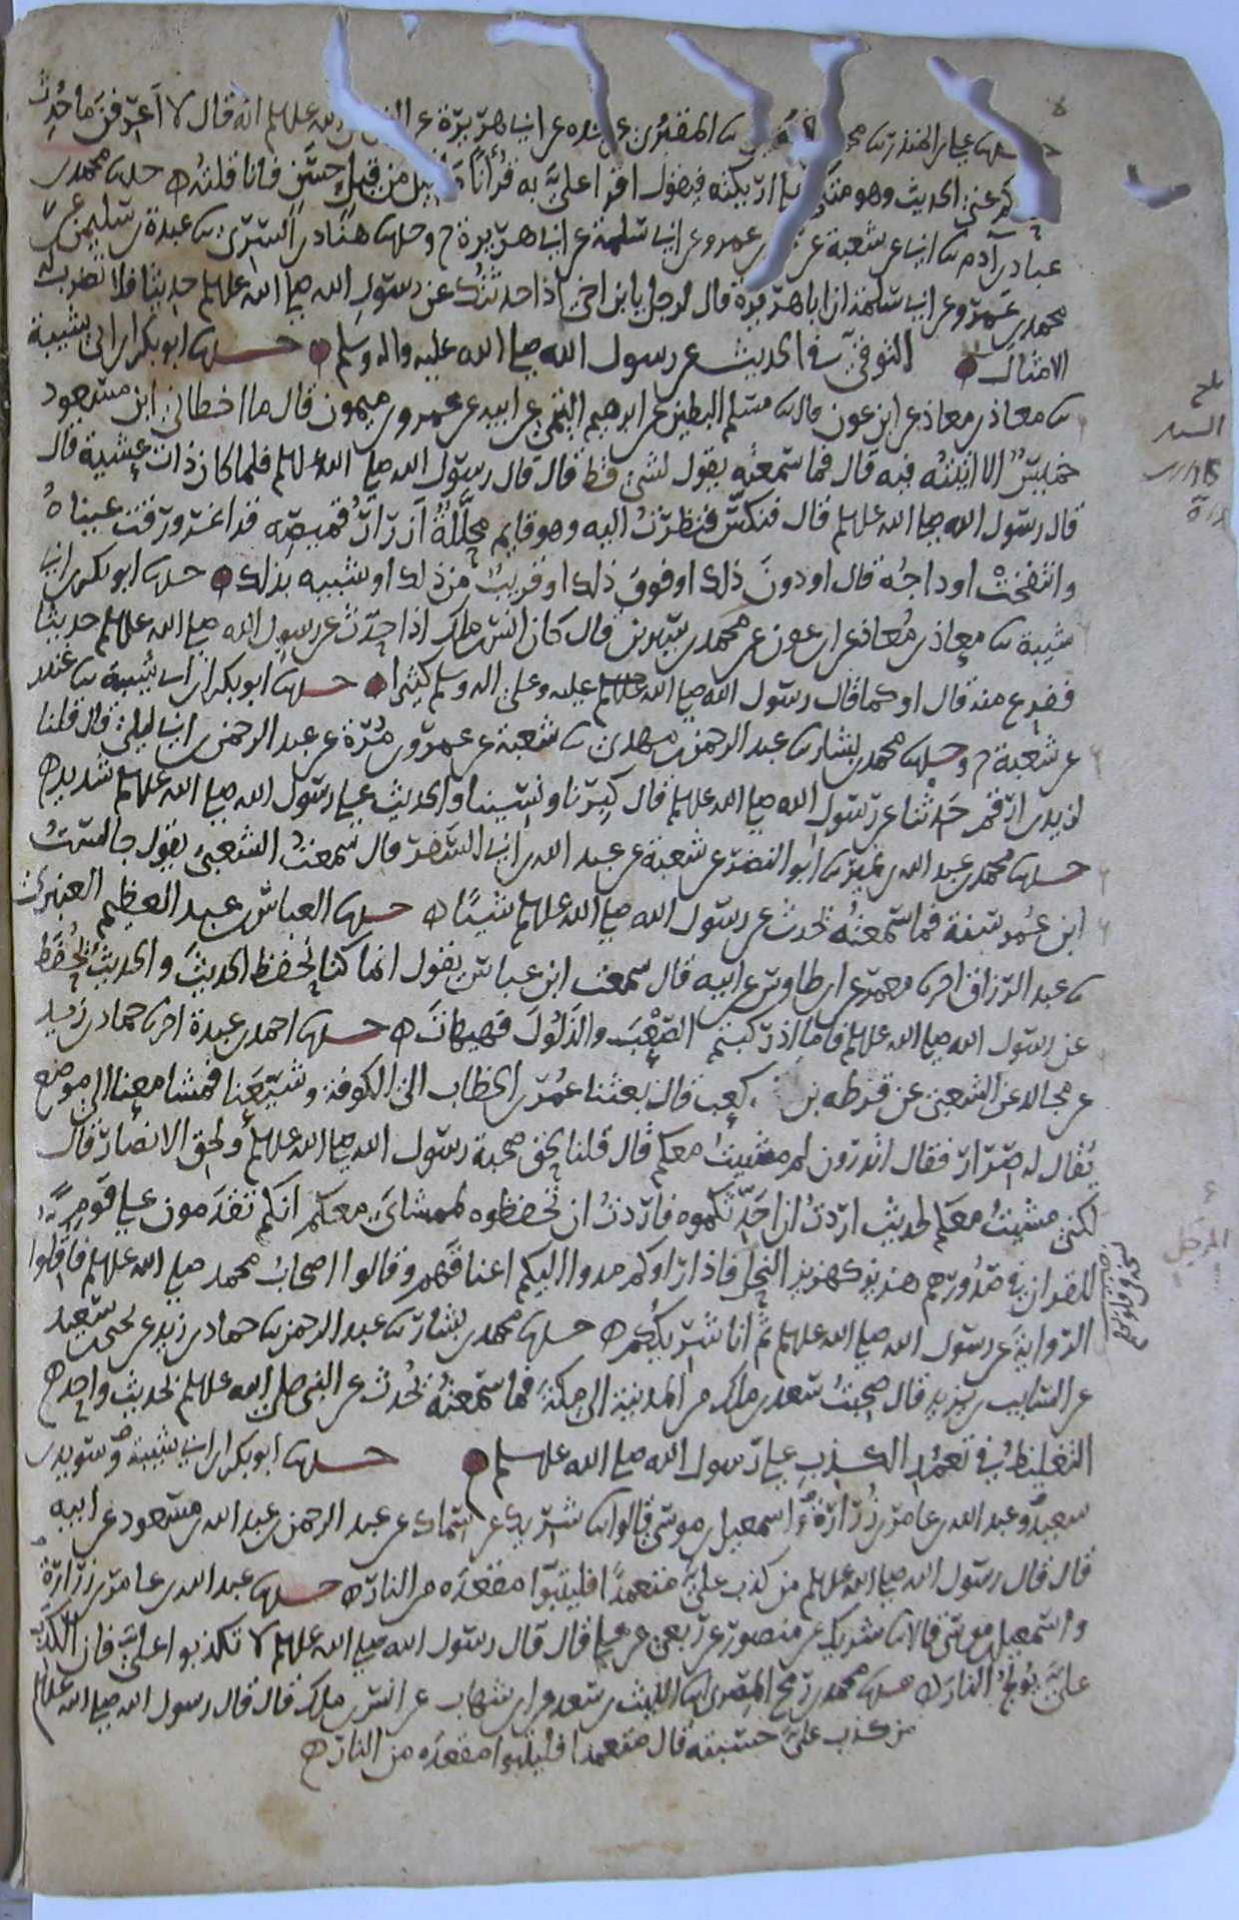 حدثنا علي بن المنذر ثنا محمد بن فضيل ثنا المقبري عن جده عن ابي هريرة عن النبي صلى الله عليه وسلم انه قال لا اعرفن ما حدث
احدكم عني الحديث وهو متكئ على اريكته فيقول اقرا علي به قرأنا ما قيل من قيل حسن فانا قلته ه حدثنا محمد بن
عباد بن آدم ثنا ابي عن شعبة عن محمد بن عمرو عن ابي سلمة عن ابي هريرة ح وحدثنا هناد بن السري ثنا عبدة بن سليمن عن
محمد بن عمرو عن ابي سلمة ان ابا هريرة قال لرجل يا بن اخي اذا حدثتك عن رسول الله صلى الله عليه وسلم حديثا فلا تضرب له
الامثال التوقي في الحديث عن رسول الله صلى الله عليه واله وسلم حدثنا ابو بكر بن ابي شيبة
ثنا معاذ بن معاذ عن ابن عون قال ثنا مسلم البطين عن ابرهيم التيمي عن ابيه عن عمرو بن ميمون قال ما اخطاني ابن مسعود
خميس الا اتيته فيه قال فما سمعته يقول لشئ قط قال قال رسول الله صلى الله عليه وسلم فلما كان ذات عشية قال
قال رسول الله صلى الله عليه وسلم قال فنكس فنظرت اليه وهو قايم محللة أزرار قميصه قد اغرورقت عيناه
وانتفخت اوداجه قال او دون ذلك او فوق ذلك او قريب من ذلك او شبيه بذلك حدثنا ابو بكر بن ابي
شيبة ثنا معاذ بن معاذ عن ابن عون عن محمد بن سيرين قال كان انس بن مالك اذا حدث عن رسول الله صلى الله عليه وسلم حديثا
ففرغ منه قال او كما قال رسول الله صلى الله عليه وعلى اله وسلم كثيرا حدثنا ابو بكر بن ابي شيبة ثنا غندر
عن شعبة ح وحدثنا محمد بن بشار ثنا عبد الرحمن بن مهدي ثنا شعبة عن عمرو بن مرة عن عبد الرحمن بن ابي ليلى قال قلنا
لزيد بن ارقم حدثنا عن رسول الله صلى الله عليه وسلم قال كبرنا ونسينا والحديث على رسول الله صلى الله عليه وسلم شديد ه
حدثنا محمد بن عبد الله بن نمير ثنا ابو النضر عن شعبة عن عبد الله بن ابي السفر قال سمعت الشعبي يقول جالست
ابن عمر سنة فما سمعته يحدث عن رسول الله صلى الله عليه وسلم شيئا ه حدثنا العباس بن عبد العظيم العنبري
ثنا عبد الرزاق اخبرنا معمر عن ابن طاوس عن ابيه قال سمعت ابن عباس يقول انما كنا نحفظ الحديث والحديث يحفظ
عن رسول الله صلى الله عليه وسلم فاما اذ ركبتم الصعب والذلول فهيهات ه حدثنا احمد بن عبدة اخبرنا حماد بن زيد
عن مجالد عن الشعبي عن قرظه بن كعب قال بعثنا عمر بن الخطاب الى الكوفة وشيعنا فمشا معنا الى موضع
يقال له صرار فقال اتدرون لم مشيت معكم قال قلنا لحق صحبة رسول الله صلى الله عليه وسلم ولحق الانصار قال
لكني مشيت معكم لحديث اردت ان احدثكموه فاردت ان تحفظوه لممشاي معكم انكم تقدمون على قوم
للقران في صدورهم هزيز كهزيز النحل فاذا راوكم مدوا اليكم اعناقهم وقالوا اصحاب محمد صلى الله عليه وسلم فاقلوا
الرواية عن رسول الله صلى الله عليه وسلم ثم انا شريككم ه حدثنا محمد بن بشار ثنا عبد الرحمن ثنا حماد بن زيد عن يحيى بن سعيد
عن السايب بن يزيد قال صحبت سعد بن مالك من المدينة الى مكة فما سمعته يحدث عن النبي صلى الله عليه وسلم بحديث واحد ه
التغليظ في تعمد الكذب على رسول الله صلى الله عليه وسلم حدثنا ابو بكر بن ابي شيبة وسويد بن
سعيد وعبد الله بن عامر بن زرارة واسمعيل بن موسى قالوا ثنا شريك عن سماك عن عبد الرحمن بن عبد الله بن مسعود عن ابيه
قال قال رسول الله صلى الله عليه وسلم من كذب علي متعمدا فليتبوا مقعده من النار ه حدثنا عبد الله بن عامر بن زرارة
واسمعيل بن موسى قالا ثنا شريك عن منصور عن ربعي عن علي قال قال رسول الله صلى الله عليه وسلم لا تكذبوا علي فان الكذب
علي يولج النار ه حدثنا محمد بن رمح المصري ثنا الليث بن سعد عن ابن شهاب عن انس بن مالك قال قال رسول الله صلى الله عليه وسلم
من كذب علي حسبته قال متعمدا فليتبوا مقعده من النار ه